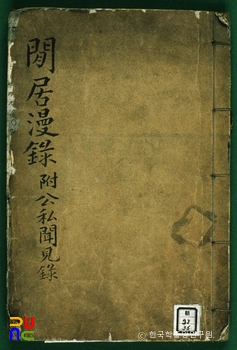 閒居漫錄 附公私聞見錄
ⓒ 한국학중앙연구원